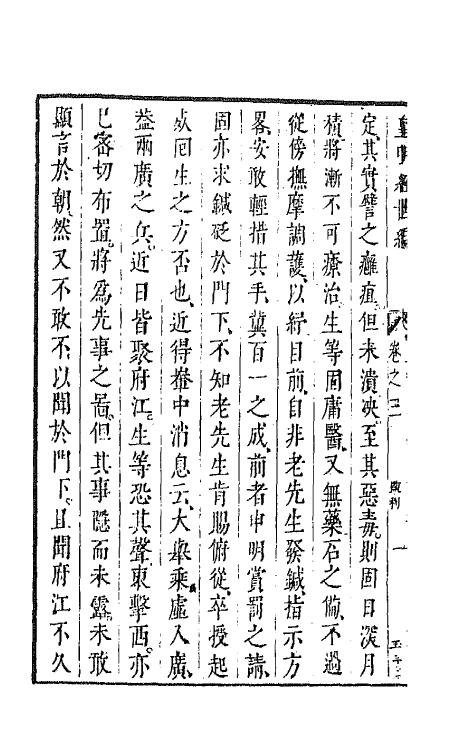 皇明經世編
卷之三
定其實譬之癰疽但未潰㽸至其惡毒則固日深月
積將漸不可療治生等固庸醫又無藥石之俻不過
從傍撫摩調護以紓目前自非老先生發鍼指示方
畧安敢輕措其手冀百一之成前者申明賞罰之請
固亦求鍼砭於門下不知老先生肯賜俯從卒授起
死囘生之方否也近得輋中消息云大舉乘虛入廣
葢兩廣之兵近日皆聚府江生等恐其聲東擊西亦
已密切布置將爲先事之啚但其事隱而未露未敢
顯言於朝然又不敢不以聞於門下且聞府江不久